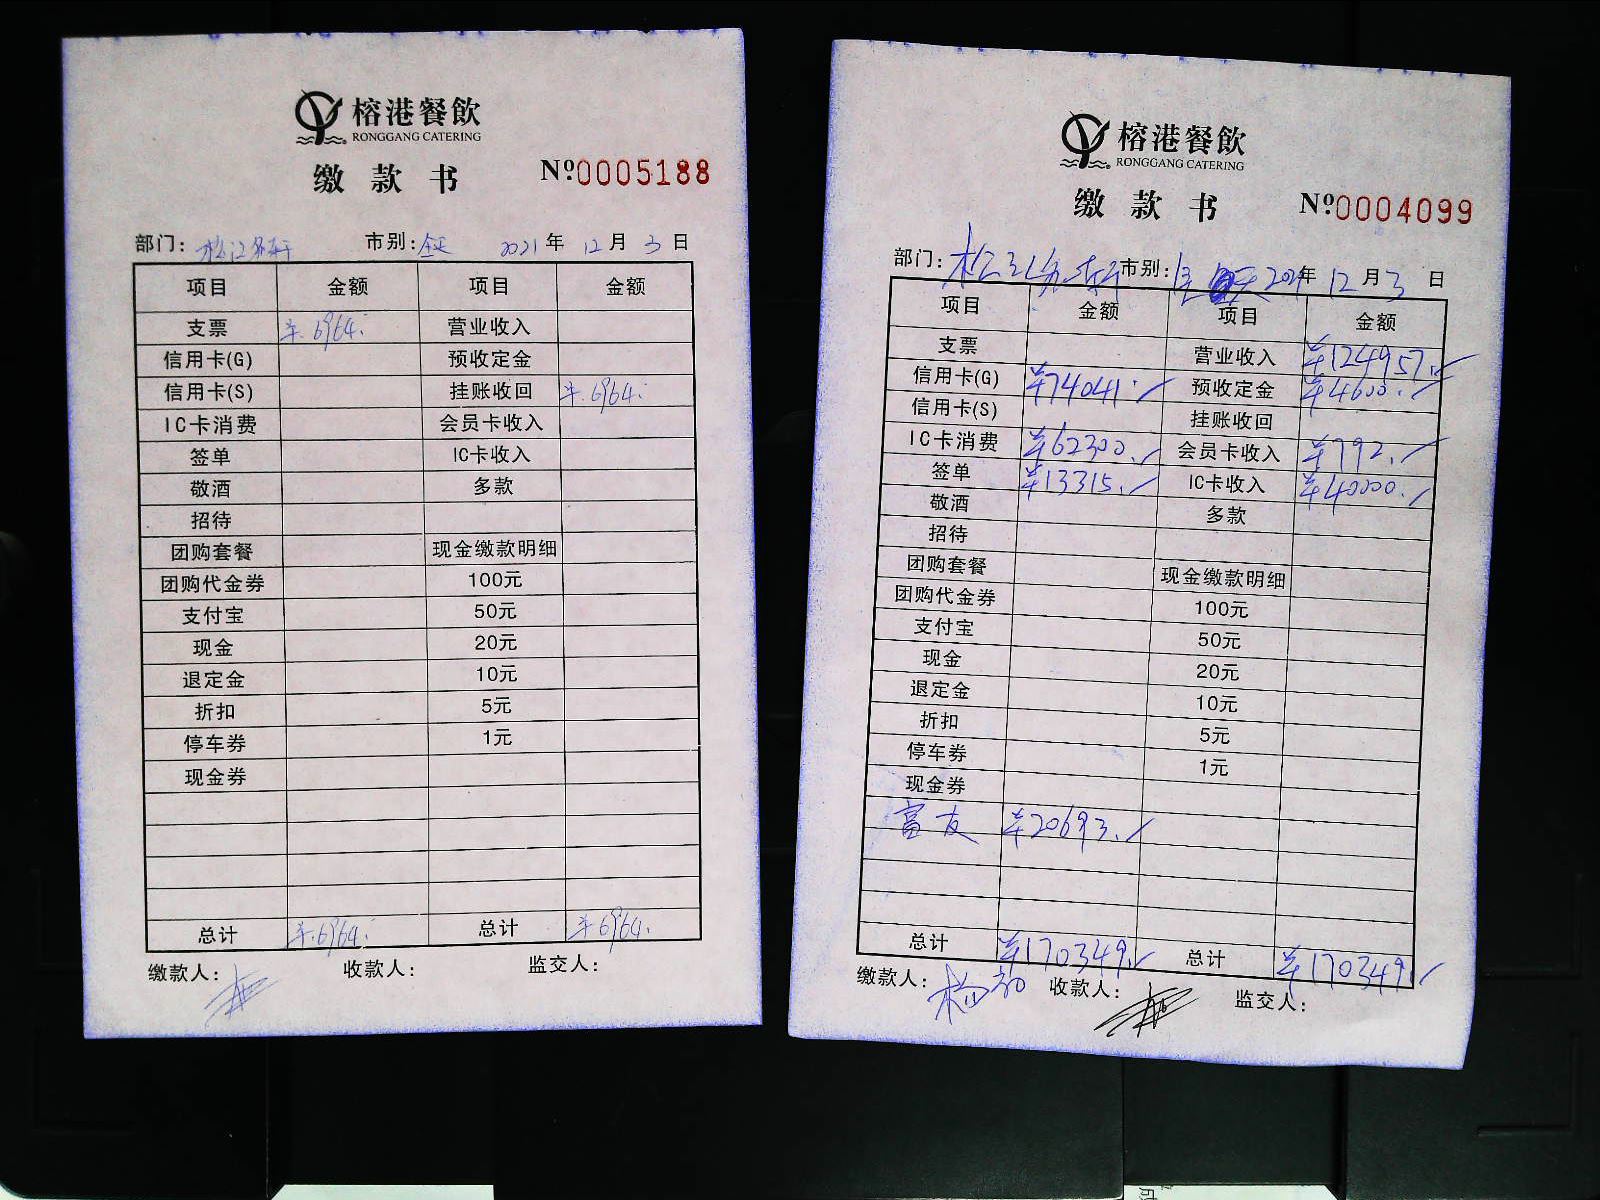 榕港餐飲
RONGGANG CATERING
缴款书 Nº0005188
部门: 市别: 2021年 12月 3日
项目 金额 项目 金额
支票 ¥6964. 营业收入
信用卡(G) 预收定金
信用卡(S) 挂账收回 ¥6964.
IC卡消费 会员卡收入
签单 IC卡收入
敬酒 多款
招待
团购套餐 现金缴款明细
团购代金券 100元
支付宝 50元
现金 20元
退定金 10元
折扣 5元
停车券 1元
现金券
总计 ¥6964. 总计 ¥6964.
缴款人: 收款人: 监交人:
榕港餐飲
RONGGANG CATERING
缴款书 Nº0004099
部门: 市别: 2021年 12月 3日
项目 金额 项目 金额
支票 营业收入 ¥124957.
信用卡(G) ¥74041. 预收定金 ¥4600.
信用卡(S) 挂账收回
IC卡消费 ¥62300. 会员卡收入 ¥792.
签单 ¥13315. IC卡收入 ¥40000.
敬酒 多款
招待
团购套餐 现金缴款明细
团购代金券 100元
支付宝 50元
现金 20元
退定金 10元
折扣 5元
停车券 1元
现金券
富友 ¥20693.
总计 ¥170349. 总计 ¥170349.
缴款人: 收款人: 监交人: